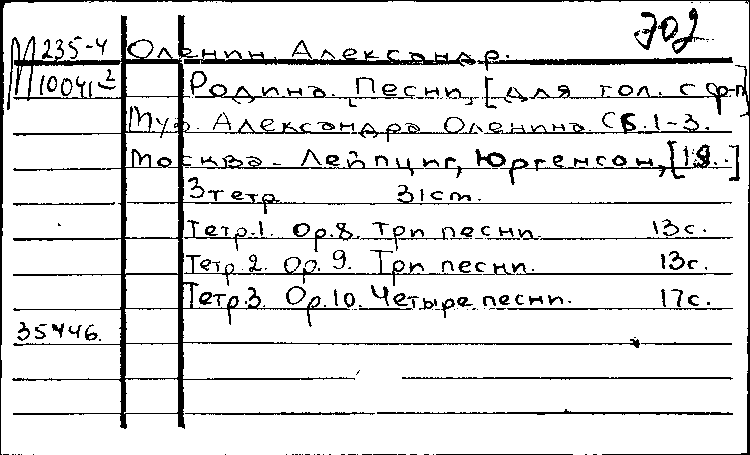 702
М 235-4 Оленин, Александр.
10041-2 Родина. Песни, [для гол. с ф-п]
Муз. Александра Оленина Сб. 1-3.
Москва - Лейпциг, Юргенсон, [18..]
3 тетр 31 ст.
Тетр. 1. Op. 8. Три песни. 13 с.
Тетр. 2. Op. 9. Три песни. 13 с.
Тетр. 3. Op. 10. Четыре песни. 17 с.
35446.